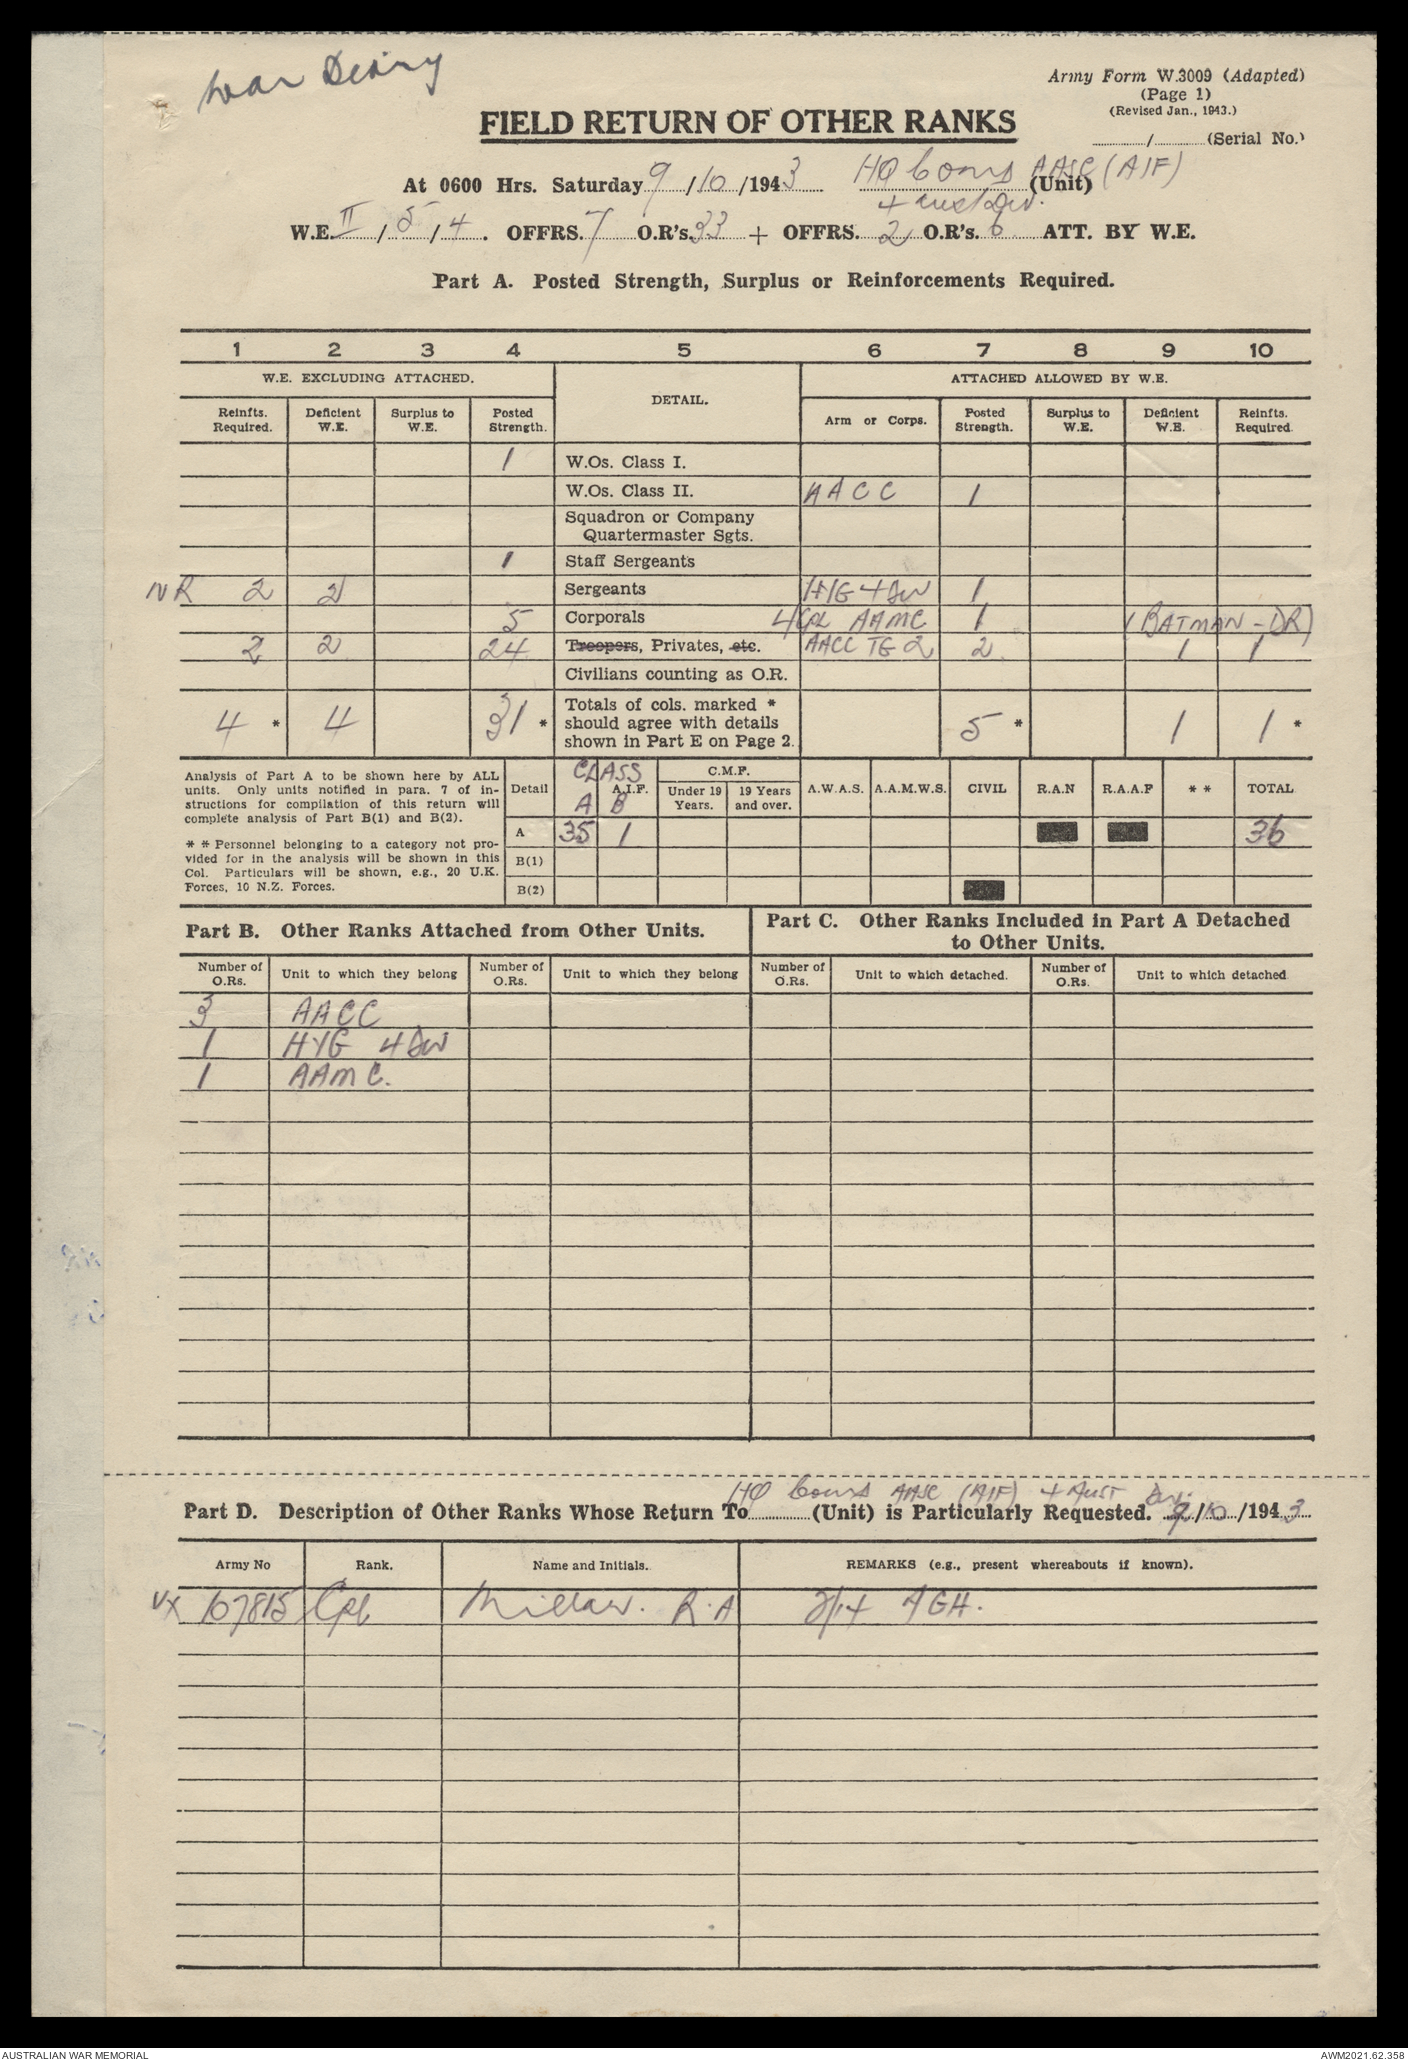 War Diary
Army Form W.3009 (Adapted)
(Page 1)
(Revised Jan., 1943.)
FIELD RETURN OF OTHER RANKS
............/............(Serial No.)
At 0600 Hrs. Saturday 9/10/1943 HQ Coms AASC (AIF) (Unit)
4 Aust Div.
W.E. II/5/4. OFFRS. 7 O.R's. 33 + OFFRS. 2 O.R's. 6 ATT. BY W.E.
Part A. Posted Strength, Surplus or Reinforcements Required.
1 2 3 4 5 6 7 8 9 10
W.E. EXCLUDING ATTACHED. DETAIL. ATTACHED ALLOWED BY W.E.
Reinfts. Required. Deficient W.E. Surplus to W.E. Posted Strength. Arm or Corps. Posted Strength. Surplus to W.E. Deficient W.E. Reinfts. Required.
1 W.Os. Class I.
W.Os. Class II. AACC 1
Squadron or Company
Quartermaster Sgts.
1 Staff Sergeants
NR 2 2 Sergeants HYG 4 Div 1
5 Corporals 4 Cpl AAMC 1 (BATMAN-DR)
2 2 24 Troopers, Privates, etc. AACC TG 2 2 1 1
Civilians counting as O.R.
4 * 4 31 * Totals of cols. marked * should agree with details shown in Part E on Page 2. 5 * 1 1 *
Analysis of Part A to be shown here by ALL
units. Only units notified in para. 7 of in-
structions for compilation of this return will
complete analysis of Part B(1) and B(2).
* * Personnel belonging to a category not pro-
vided for in the analysis will be shown in this
Col. Particulars will be shown, e.g., 20 U.K.
Forces, 10 N.Z. Forces.
CLASS C.M.F.
Detail A A.I.F. B Under 19 Years. 19 Years and over. A.W.A.S. A.A.M.W.S. CIVIL R.A.N R.A.A.F * * TOTAL
A 35 1 36
B(1)
B(2)
Part B. Other Ranks Attached from Other Units.
Part C. Other Ranks Included in Part A Detached
to Other Units.
Number of O.Rs. Unit to which they belong Number of O.Rs. Unit to which they belong Number of O.Rs. Unit to which detached. Number of O.Rs. Unit to which detached
3 AACC
1 HYG 4 Div
1 AAMC.
HQ Coms AASC (AIF) 4 Aust Div.
Part D. Description of Other Ranks Whose Return To............(Unit) is Particularly Requested. 9/10/1943
Army No Rank. Name and Initials. REMARKS (e.g., present whereabouts if known).
VX 107815 Cpl Millar. R.A 2/14 AGH.
AUSTRALIAN WAR MEMORIAL
AWM2021.62.358